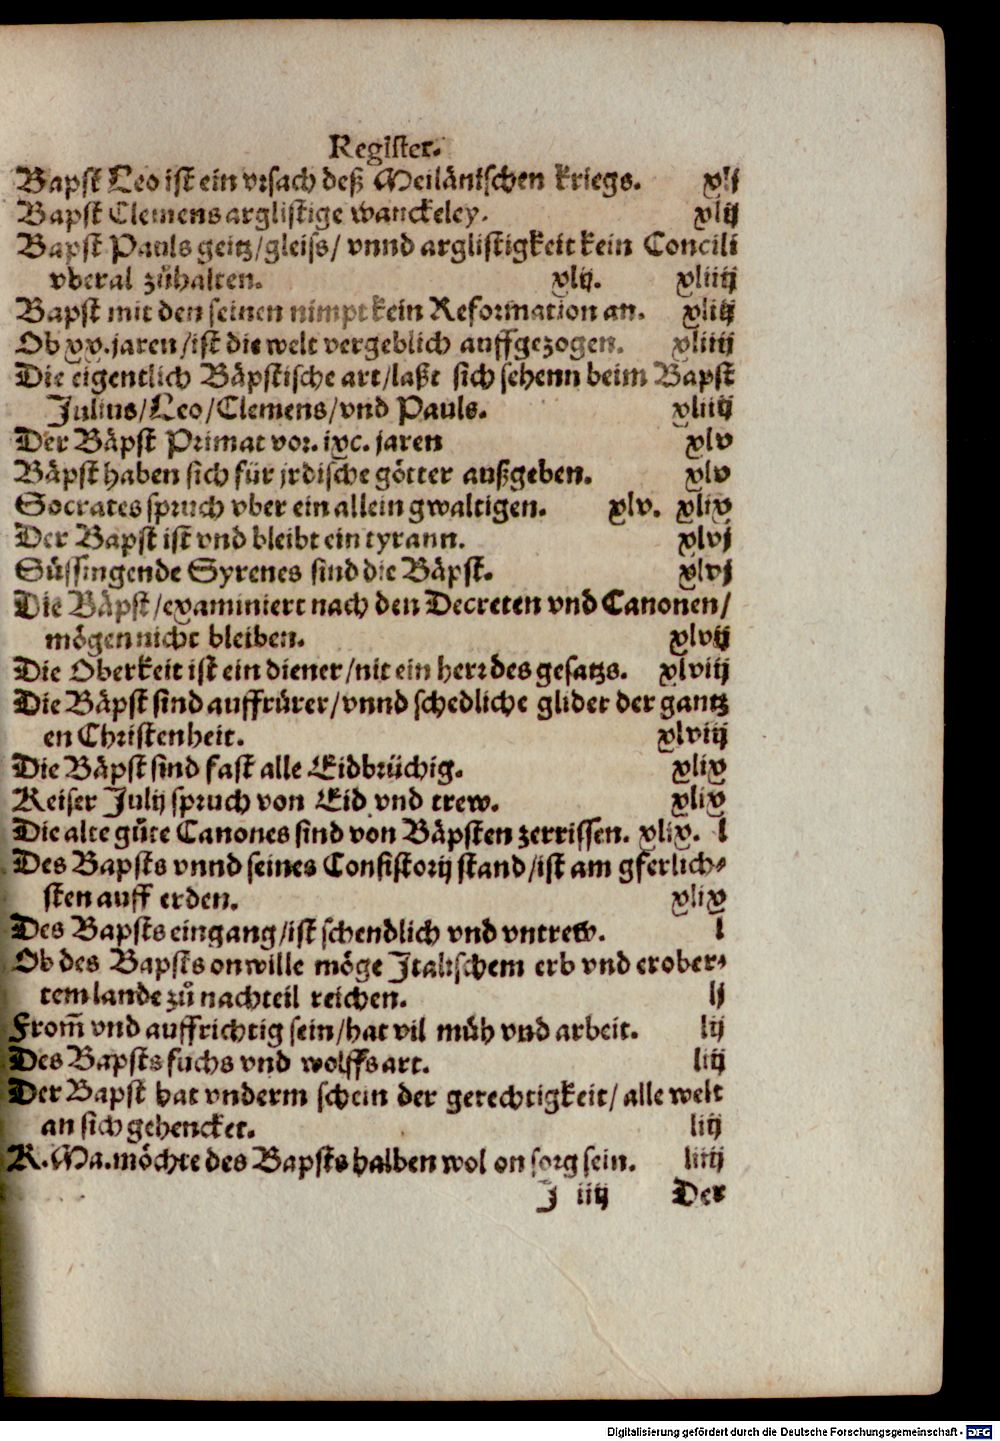 Register.
Bapst Leo ist ein vrsach deß Meiländischen kriegs. xlj
Bapst Clemens arglistige wanckeley. xlij
Bapst Pauls geitz/gleiss/ vnnd arglistigkeit kein Concili
vberal zůhalten. xlij. xliiij
Bapst mit den seinen nimpt kein Reformation an. xliij
Ob xx.jaren/ist die welt vergeblich auffgezogen. xliiij
Die eigentlich Bäpstische art/laßt sich sehenn beim Bapst
Julius/Leo/Clemens/vnd Pauls. xliiij
Der Bäpst Primat vor. ixc. jaren xlv
Bäpst haben sich für jrdische götter außgeben. xlv
Socrates spruch vber ein allein gwaltigen. xlv. xlix
Der Bapst ist vnd bleibt ein tyrann. xlvj
Süssingende Syrenes sind die Bäpst. xlvj
Die Bäpst/examiniert nach den Decreten vnd Canonen/
mögen nicht bleiben. xlvij
Die Oberkeit ist ein diener/nit ein herr des gesatzs. xlviij
Die Bäpst sind auffrürer/vnnd schedliche glider der gantz
en Christenheit. xlviij
Die Bäpst sind fast alle Eidbrüchig. xlix
Keiser Julij spruch von Eid vnd trew. xlix
Die alte gůte Canones sind von Bäpsten zerrissen. xlix. l
Des Bapsts vnnd seines Consistorij stand/ist am gferlich⸗
sten auff erden. xlix
Des Bapsts eingang/ist schendlich vnd vntrew. l
Ob des Bapsts onwille möge Italischem erb vnd erober⸗
tem lande zů nachteil reichen. lj
From̃ vnd auffrichtig sein/hat vil müh vnd arbeit. lij
Des Bapsts fuchs vnd wolffs art. liij
Der Bapst hat vnderm schein der gerechtigkeit/ alle welt
an sich gehencket. liij
K. Ma. möchte des Bapsts halben wol on sorg sein. liiij
J iiij Der
Digitalisierung gefördert durch die Deutsche Forschungsgemeinschaft - DFG